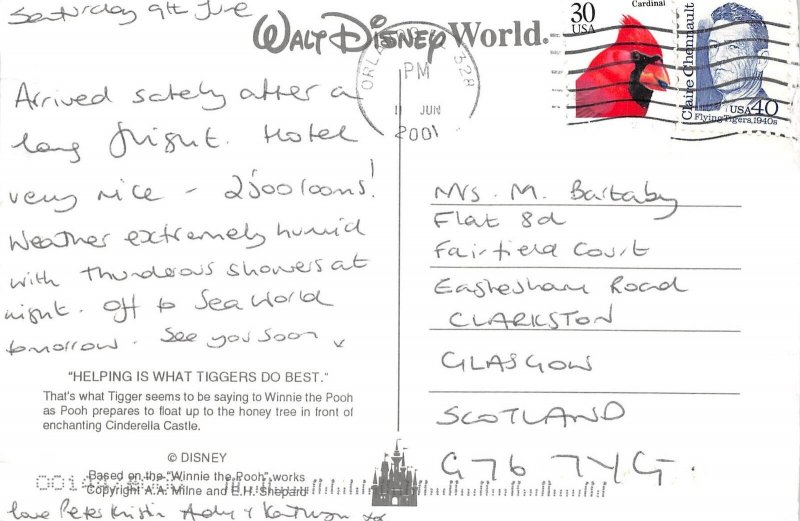 Saturday 9th June
WALT DISNEY World®
ORLANDO 328
PM
11 JUN
2001
30
USA
Cardinal
Claire Chennault
USA 40
Flying Tigers, 1940s
Arrived safely after a
long flight. Hotel
very nice - 2500 rooms!
Weather extremely humid
with thunderous showers at
night. Off to Sea World
tomorrow. See you soon
Mrs. M. Bartaby
Flat 8d
Fairfield Court
Eaglesham Road
CLARKSTON
GLASGOW
SCOTLAND
G76 7YG.
"HELPING IS WHAT TIGGERS DO BEST."
That's what Tigger seems to be saying to Winnie the Pooh
as Pooh prepares to float up to the honey tree in front of
enchanting Cinderella Castle.
© DISNEY
Based on the "Winnie the Pooh" works
Copyright A.A. Milne and E.H. Shepard
love Peter Kristin Andy + Kathryn xx